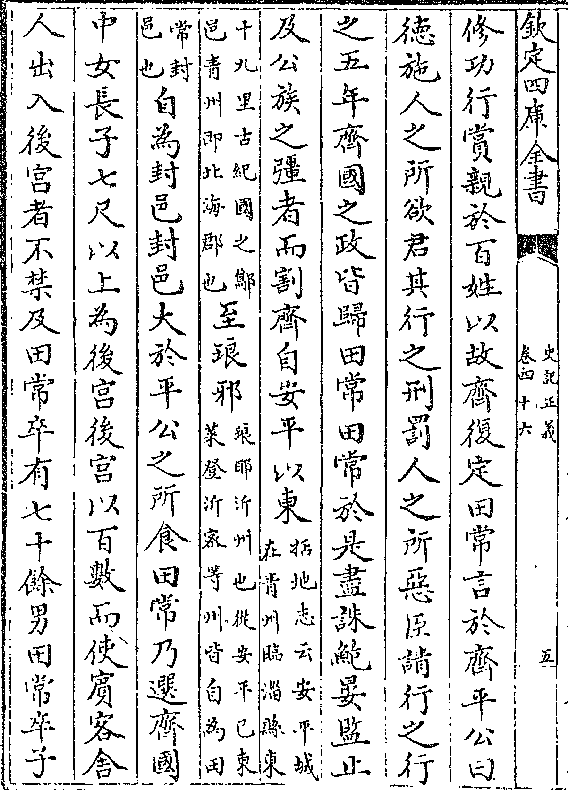 欽定四庫全書
史記正義
卷四十六
五
修功行賞親於百姓以故齊復定田常言於齊平公曰
德施人之所欲君其行之刑罰人之所惡臣請行之行
之五年齊國之政皆歸田常田常於是盡誅鮑晏監止
及公族之彊者而割齊自安平以東
括地志云安平城
在青州臨淄縣東
十九里古紀國之酅
邑青州即北海郡也
至琅邪
琅耶沂州也從安平已東
萊登沂密等州皆自為田
常封
邑也
自為封邑封邑大於平公之所食田常乃選齊國
中女長子七尺以上為後宮後宮以百數而使賓客舍
人出入後宮者不禁及田常卒有七十餘男田常卒子